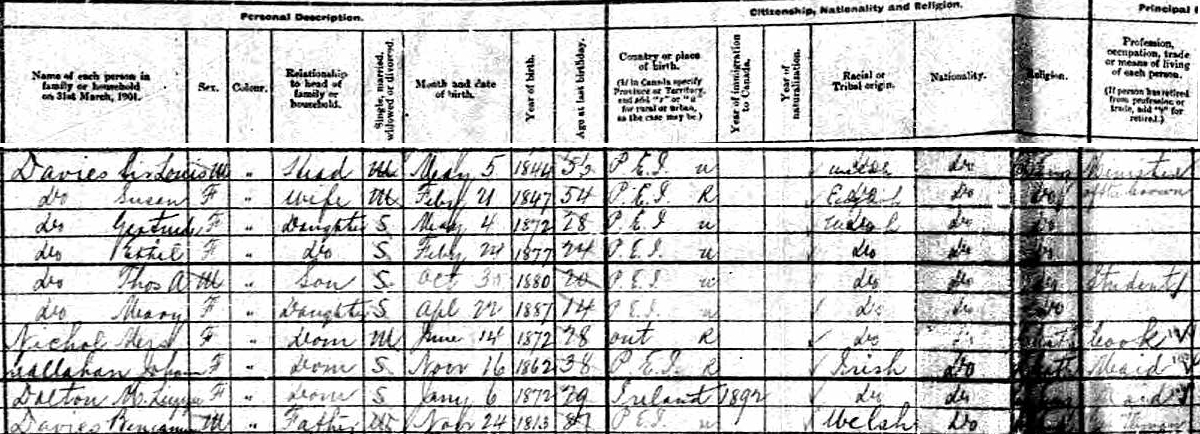 Personal Description. Citizenship, Nationality and Religion. Principal
Name of each person in family or household on 31st March, 1901. Sex. Colour. Relationship to head of family or household. Single, married, widowed or divorced. Month and date of birth. Year of birth. Age at last birthday. Country or place of birth. (If in Canada specify Province or Territory, and add "r" or "u" for rural or urban, as the case may be.) Year of immigration to Canada. Year of naturalization. Racial or Tribal origin. Nationality. Religion. Profession, occupation, trade or means of living of each person. (If person has retired from profession or trade, add "r" for retired.)
Davies Sir Louis M " Head M May 5 1844 P.E.I. u do Minister
do Susan F " Wife M Feby 21 1847 54 P.E.I. R English do of the Crown
do Gertrude F " Daughter S May 4 1872 28 P.E.I. u do
do Ethel F " do S Feby 24 1877 24 P.E.I. u do do do
do Thos A M " Son S Oct 30 1880 20 P.E.I. u do do Student
do Mary F " Daughter S Apl 22 1887 14 P.E.I. u do do do
Nichol F " Dom M June 14 1872 28 Ont R do Cook
Callahan F " Dom S Nov 16 1862 38 P.E.I. R Irish do Maid
Dalton F " Dom S Jany 6 1872 29 Ireland 1892 do do Maid
Davies Benjamin M " Father W Nov 24 1813 87 P.E.I. u Welsh do